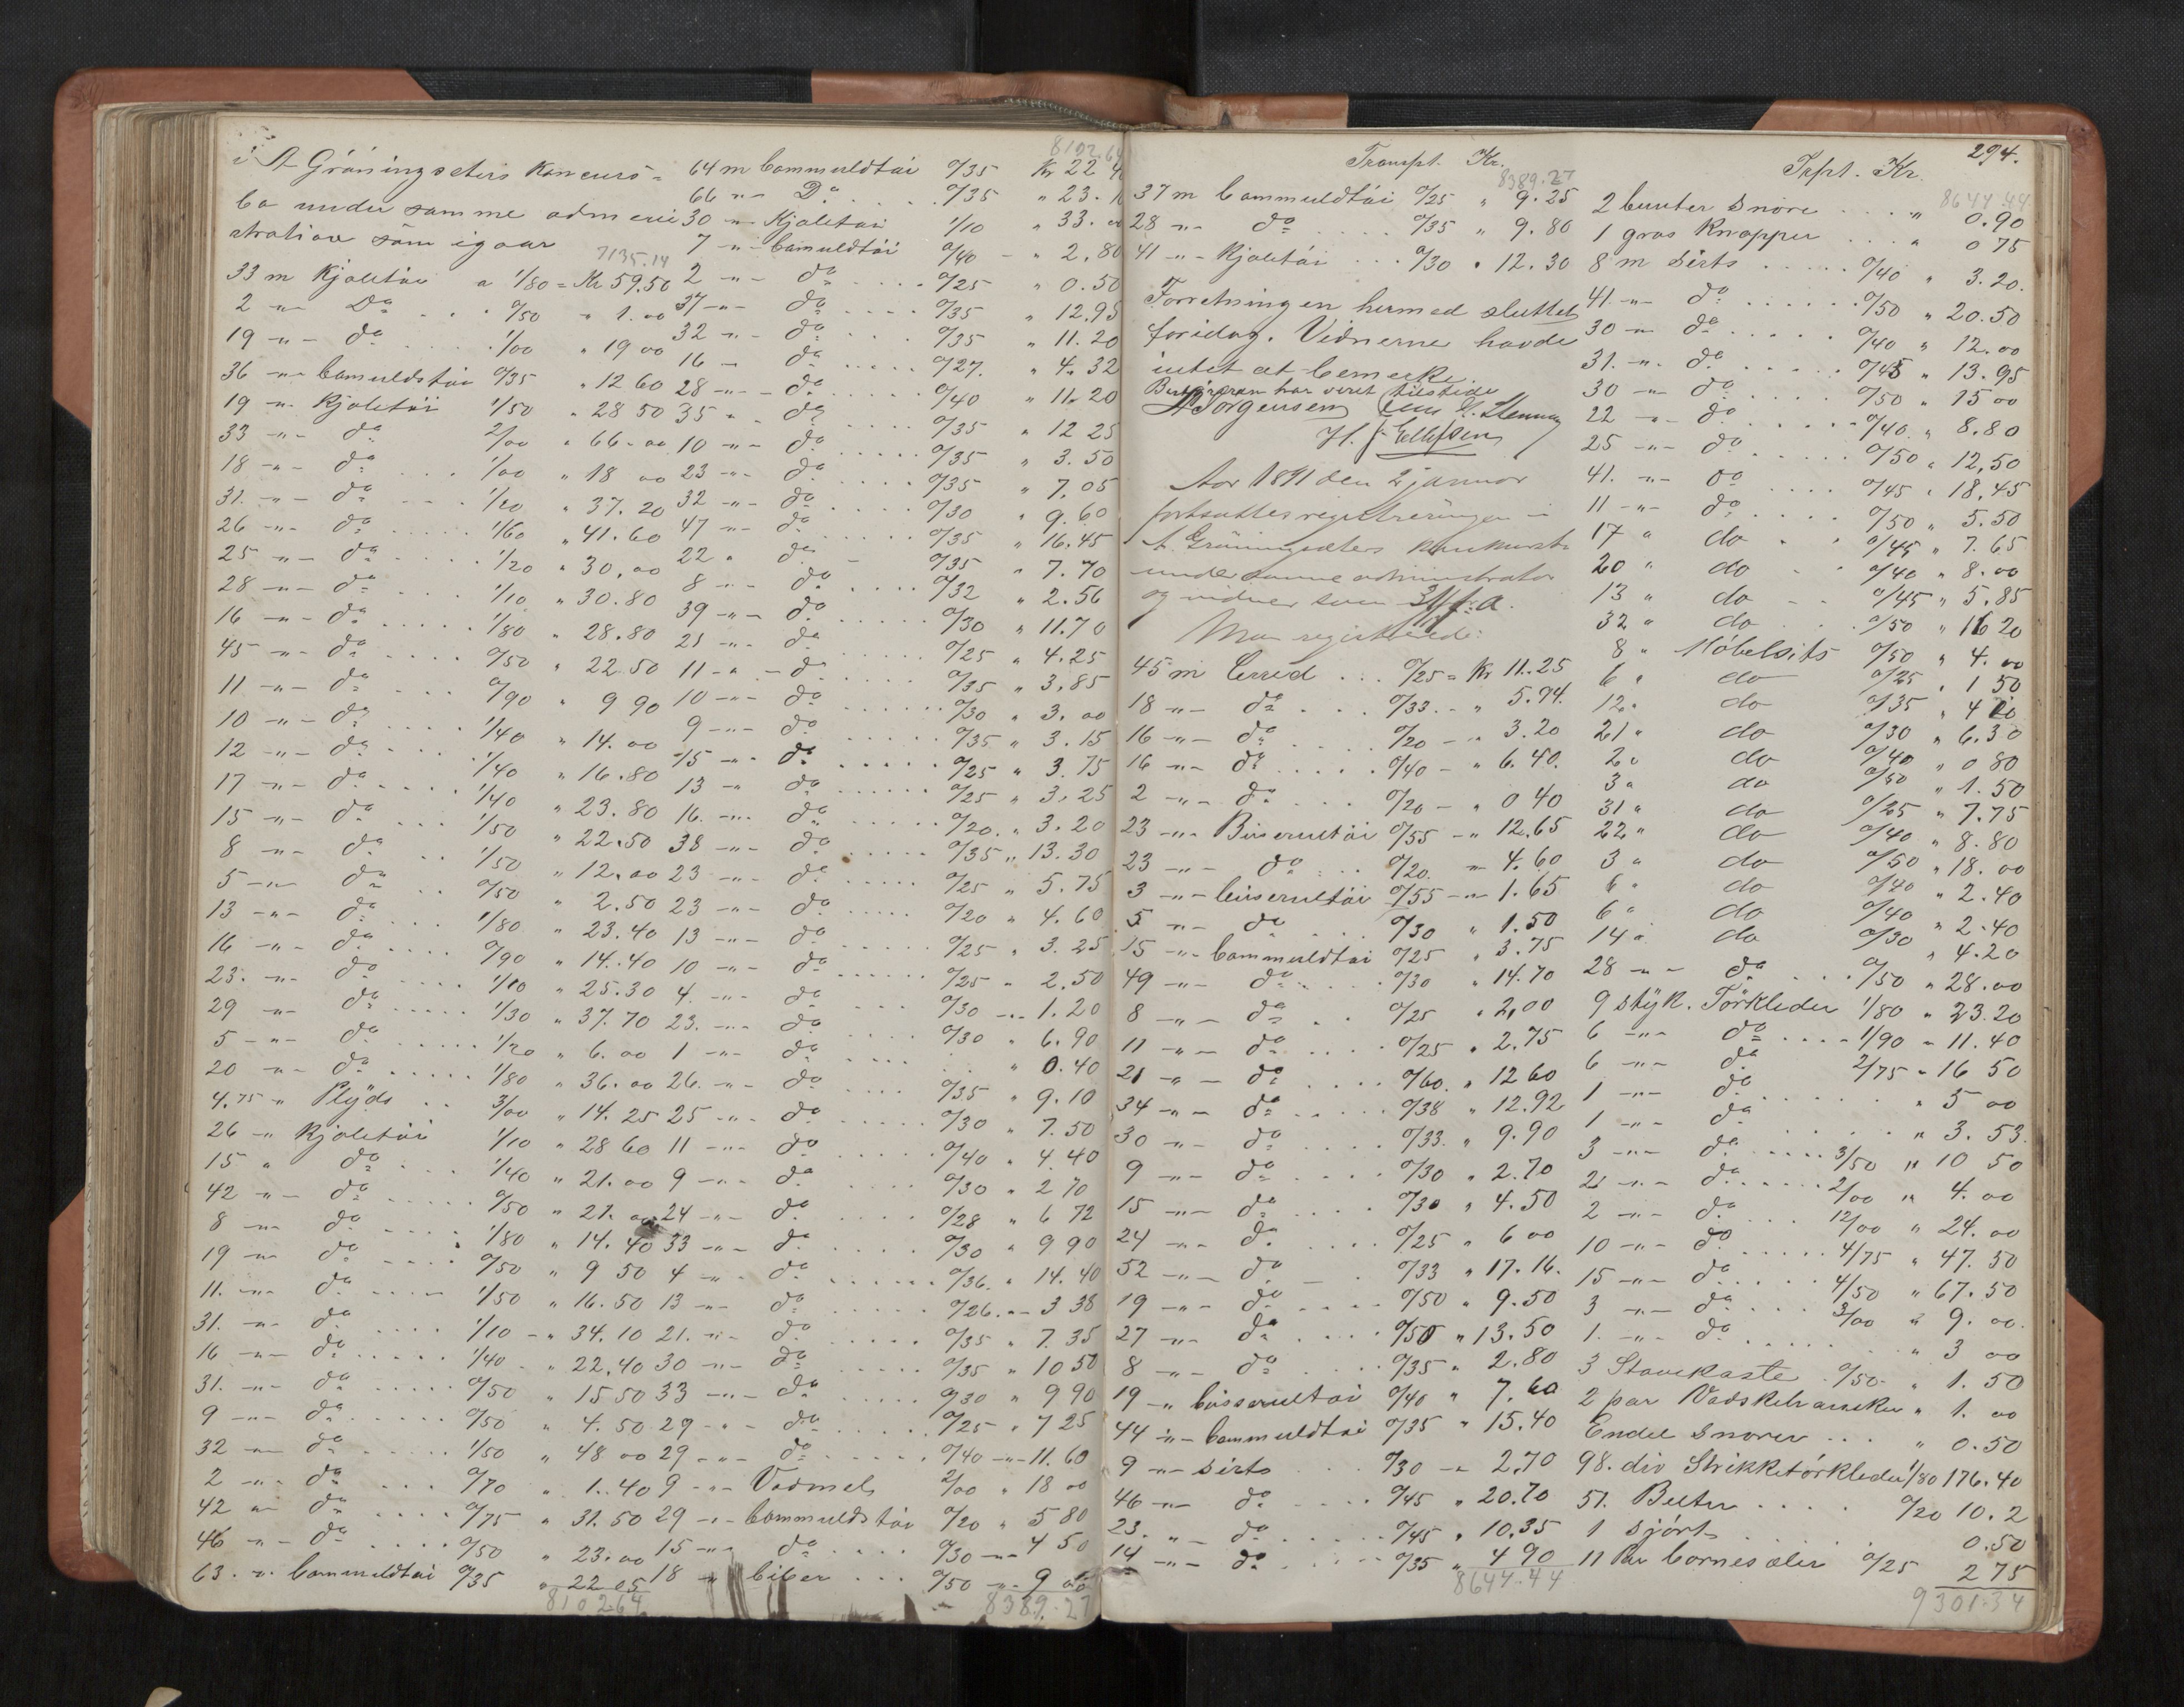 i A Gröningseters Konkurs-
bo under samme admini
stration som igaar
7135.14
33 m Kjoletöi a 1/80 = Kr 59.50
2 -"- Do . . . 0/50 " 1.00
19 -"- do . . . . 1/00 " 19 00
36 -"- Bomuldstöi 0/35 " 12 60
19 -"- Kjoletöi 1/50 " 28 50
33 -"- do 2/00 " 66.00
18 -"- do . . . . 1/00 " 18 00
31. -"- do . . . 1/20 " 37.20
26 -"- do . . . . 1/60 " 41.60
25 -"- do . . . . 1/20 " 30.00
28 -"- do . . . . 1/10 " 30.80
16 -"- do . . . . . 1/80 " 28.80
45 -"- do . . . . 0/50 " 22.50
11 -"- do . . . 0/90 " 9 90
10 -"- do . . . . 1/40 " 14.00
12 -"- do . . . . 1/40 " 16.80
17 -"- do . . . . 1/40 " 23.80
15 -"- do . . . 1/50 " 22.50
8 -"- do . . 1/50 " 12.00
5 -"- do . . 0/50 " 2.50
13 -"- do . . . . 1/80 " 23.40
16 -"- do . . . . 0/90 " 14.40
23. -"- do . . . . 1/10 " 25.30
29 -"- do . . . . 1/30 " 37.70
5 -"- do . . . . . 1/20 " 6.00
20 -"- do . . . . . 1/80 " 36.00
4.75 " Plyds . . 3/00 " 14.25
26 -" Kjoletöi 1/10 " 28 60
15 " do . . . 1/40 " 21.00
42 -"- do . . . . . 0/50 " 21.00
8 -"- do 1/80 " 14.40
19 -"- do . . . . 0/50 " 9 50
11. -"- do . . . . 1/50 " 16.50
31. -"- do . . . . 1/10 - " 34.10
16 -"- do . . . . . 1/40 - " 22.40
31. -"- do . . . . . 0/50 " 15 50
9 -"- do . . . . . 0/50 " 4.50
32 -"- do . . . . . 1/50 " 48 00
2 -"- do . . . . 0/70 " 1.40
42 -"- do . . . . 0/75 " 31.50
46 -"- do . . . . 0/50 " 23.00
63. -"- Bommuldtöi 0/35 " 22 05
8102.64
8102.64
64 m Bommuldtöi 0/35 Kr 22 4
66 -"- Do . . . . 0/35 " 23.1
30 -"- Kjoletöi 1/10 " 33.00
7 -"- Bomuldtöi 0/40 - " 2.80
2 -"- do . . . . 0/25 " 0.50
37 -"- do . . . . 0/35 " 12.95
32 -"- do . . . 0/35 " 11.20
16 -"- do . . . . . 0/27. " 4.32
28 -"- do . . . . . 0/40 " 11.20
35 " do . . . . 0/35 " 12 25
10 -"- do . . . . . 0/35 " 3.50
23 -"- do . . . . 0/35 " 7.05
32 -"- do . . . . . 0/30 " 9.60
47 -"- do . . . . . 0/35 " 16.45
22 " do - 0/35 " 7.70
8 -"- do . . . . 0/32 " 2.56
39 -"- do . . . . 0/30 " 11.70
21 -"- do . . . . . 0/25 " 4.25
11 -"- do . . . . . 0/35 " 3.85
10 -"- do . . . . . . 0/30 " 3.00
9 -"- do . . . . . 0/35 " 3.15
15 -"- do . . . . . . 0/25 " 3.75
13 -" do . . . . . . 0/25 " 3.25
16. -"- do . . . . . 0/20. " 3.20
38 -"- do . . . . . 0/35 " 13.30
23 -"- do . . . . . 0/25 " 5.75
23 -"- do . . . . . 0/20 " 4.60
13 -"- do . . . . . 0/25 " 3.25
10 -"- do . . . . . . 0/25 " 2.50
4. -"- do . . . 0/30 -"- 1.20
23. -"- do . . . . 0/30 " 6.90
1 -"- do . . . . " 0.40
26. -"- do . . . . 0/35 " 9.10
25 -"- do . . . . . 0/30 " 7.50
11 -"- do . . . . . 0/40 " 4.40
9 -"- do . . . . 0/30 " 2 70
24 -"- do . . . . 0/28 " 6 72
33 -"- do . . . . 0/30 " 9 90
4 -"- do . . . . . . 0/36. " 14.40
13 -"- do . . . . . 0/26. -"- 3 38
21. -"- do . . . . . 0/35 " 7.35
30 -"- do . . . . . 0/35 " 10 50
33 -"- do . . . . . 0/30 " 9 90
29 -"- do . . . . . 0/25 " 7 25
29 -"- do . . . . . 0/40 -"- 11.60
9 -"- Vadmel 2/00 " 18 00
29 -"- Bommuldstöi 0/20 " 5 80
15 -"- do . . . . 0/30 -"- 4 50
18 -"- biber . . . 0/50 -"- 9 00
8389.27
Transpt. Kr. 8389.27
37 m Bommuldtöi 0/25 " 9.25
28 -"- do . . . . 0/35 " 9.80
41 -"- Kjoletöi . . . 0/30 " 12.30
Forretningen hermed sluttet
foridag. Vidnerne havde
intet at bemerke
har veret tilstede
A Borgensen
H. J. Ellefsen
Aar 1891 den 2 januar
fortsattes registreringen i
A. Gröningsæters konkursbo
under samme administrator
og vidner som
Man registrerede:
45 m Cerred . . . 0/25 = Kr 11.25
18 -"- do . . . 0/33. - " 5.94.
16 -"- do . . . . 0/20 - " 3.20
16 -"- do . . . . . 0/40 - " 6.40.
2 -"- do . . . 0/20 - " 0 40
23 -"- Büserultöi 0/55 -" 12.65
23 -"- do . . . 0/20. -"- 4.60
3 -"- büserultöi 0/55 -"- 1.65
5 -"- do . . . . 0/30 " 1.50
15 -"- Bommuldtöi 0/25 " 3.75
49 -"- do . . . . 0/30 " 14.70
8 -"- do . . 0/25 " 2,00
11 -"- do . . . . 0/25 " 2.75
21 -"- do . . . . 0/60. " 12 60
34 -"- do . . . . 0/38 " 12.92
30 -"- do . . . . 0/33. " 9.90
9 -"- do . . . . 0/30 " 2.70
15 -"- do . . . . 0/30 " 4.50
24 -"- do . . . . 0/25 " 6 00
52 -"- do - . 0/33 " 17.16.
19 -"- do . . . . 0/50 " 9.50
27 -"- do . . . . 0/50 " 13.50
8 -"- do . . . . 0/35 " 2.80
19 -" büsserultöi 0/40 " 7.60
44 -"- Bommuldtöi 0/35 " 15.40
9 -"- Sirts 0/30 -"- 2.70
46 -"- do . . . . 0/45 " 20.70
23. " do . . . . . 0/45 " 10.35
14 -"- do . . . . . 0/35 " 4 90
8644.44
294.
Trpt. Kr. 8644.44
2 bunter Snore . . . . " 0.90
1 gros Knapper . . . " 0 75
8 m Sirts . . . . . 0/40 " 3.20.
41. -"- do . . . . . . 0/50 " 20.50
30 -"- do . . . . . 0/40 " 12.00
31. -"- do . . . . . 0/45 " 13.95
30 -"- do . . . . . 0/50 " 15 00
22 -"- do . . . . . 0/40. " 8.80
25 -"- do . . . . . 0/50 " 12,50
41. -"- do . . . . 0/45 " 18.45
11 -"- do . . . . 0/50 " 5.50
17 " do " " 0/45 " 7.65
20 " do - - 0/40 " 8.00
13 " do - - 0/45 " 5.85
32 " do . . . 0/50 " 16 20
8 " Möbelsits 0/50 " 4.00
6 " do 0/25 " 1 50
12 " do 0/35 " 4 20
21 " do 0/30 " 6.30
2 " do 0/40 " 0 80
3 " do 0/50 " 1.50
31 " do 0/25 " 7.75
22 " do 0/40 " 8.80
3 " do 0/50 " 18.00
6 " do 0/40 " 2.40
6 " do 0/40 " 2.40
14 " do 0/30 " 4.20
28 -"- do . . . 0/50 " 28.00
9 styk. Törkleder 1/80 " 23.20
6 -"- do . . . . 1/90 - 11.40
6 -"- do 2/75 - 16 50
1 -"- do . . . . . . " 5 00
1 -"- do . . . . . . " 3.53.
3 -"- do . . . . . 3/50 " 10 50
2 -"- do . . . . . . 2/00 " 4.00
2 -"- do . . . 12/00 " 24.00
10 -"- do . . . . . 4/75 " 47.50
15 -"- do . . . . . 4/50 " 67.50
3 -"- do . . . . 3/00 " 9.00.
1. -"- do . . . . . . " 3 00
3 Stavekaste 0/50 - " 1.50
2 par Vadskehansker " 1.00
Endel Snorer . . . " 0.50
98. div Strikketörkleder 1/80 176.40
51. Belter . . . . 0/20 10.2
1 Sjört . . . . . 0.50
11 Par Bornesæler 0/25 2 75
9301.34